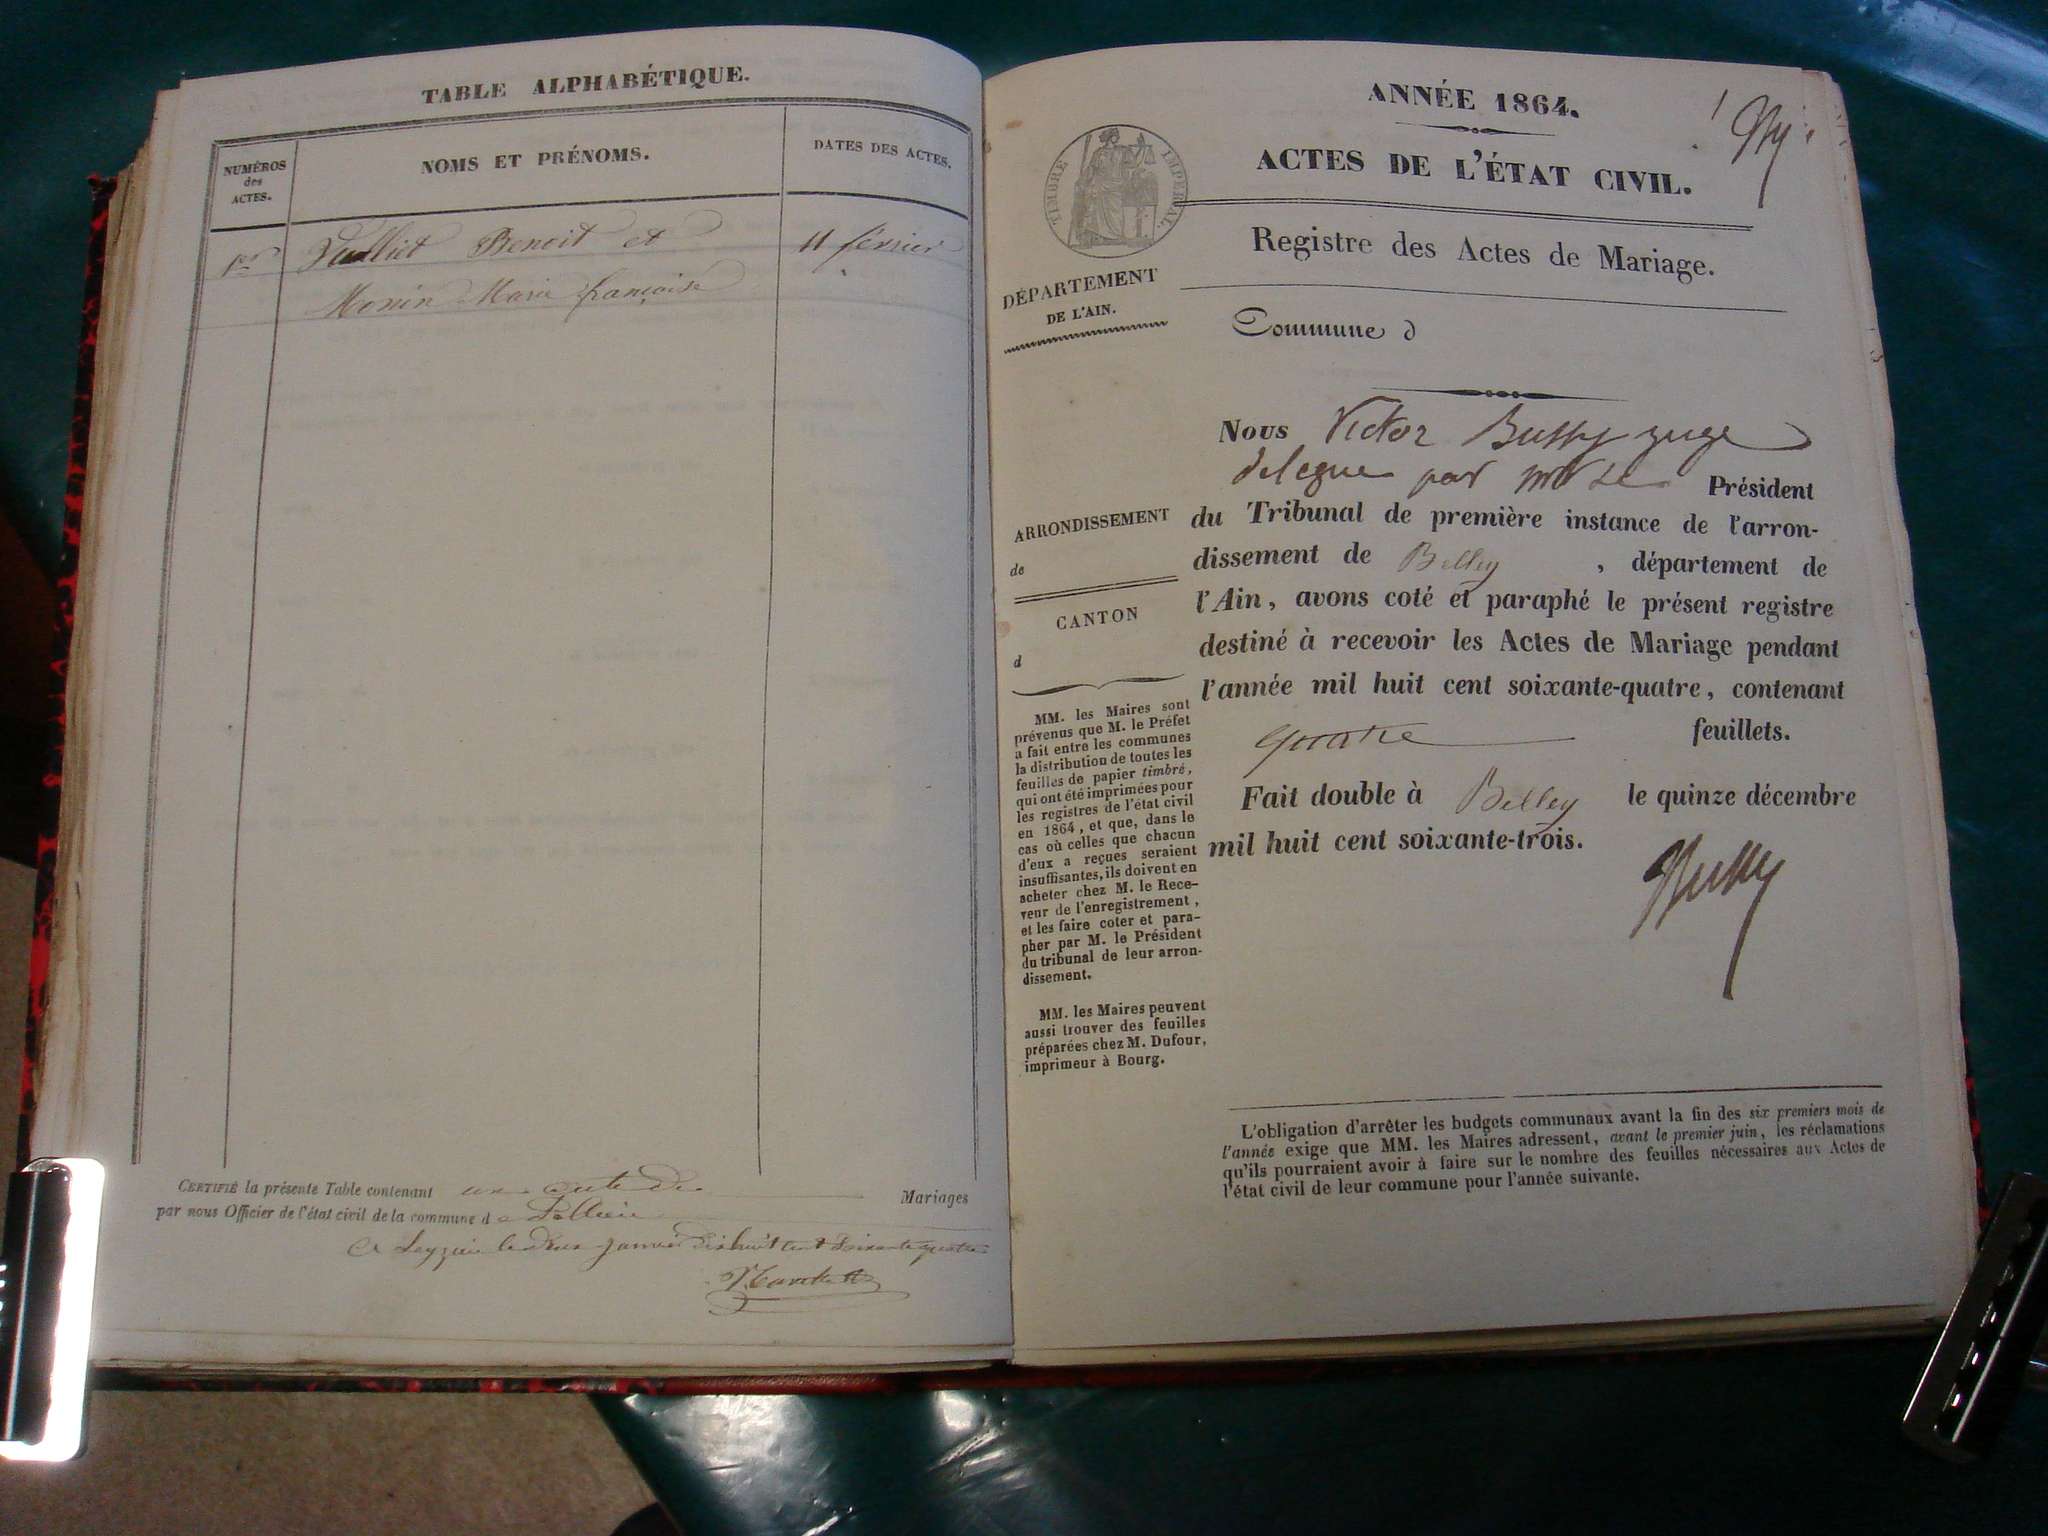 TABLE ALPHABÉTIQUE.
NUMÉROS
des
ACTES.
NOMS ET PRÉNOMS.
DATES DES ACTES.
1er Benoit et 11 février
Monin Marie françoise
CERTIFIÉ la présente Table contenant un acte de Mariages
par nous Officier de l'état civil de la commune d
le deux janvier soixante quatre
ANNÉE 1864.
1
ACTES DE L'ÉTAT CIVIL.
TIMBRE IMPÉRIAL
Registre des Actes de Mariage.
DÉPARTEMENT
DE L'AIN.
Commune d
Nous Victor Bussy juge
delegue par mr le Président
du Tribunal de première instance de l'arron-
dissement de Belley , département de
l'Ain, avons coté et paraphé le présent registre
destiné à recevoir les Actes de Mariage pendant
l'année mil huit cent soixante-quatre, contenant
quatre feuillets.
Fait double à Belley le quinze décembre
mil huit cent soixante-trois.
Bussy
ARRONDISSEMENT
de
CANTON
d
MM. les Maires sont
prévenus que M. le Préfet
a fait entre les communes
la distribution de toutes les
feuilles de papier timbré,
qui ont été imprimées pour
les registres de l'état civil
en 1864, et que, dans le
cas où celles que chacun
d'eux a reçues seraient
insuffisantes, ils doivent en
acheter chez M. le Rece-
veur de l'enregistrement,
et les faire coter et para-
pher par M. le Président
du tribunal de leur arron-
dissement.
MM. les Maires peuvent
aussi trouver des feuilles
préparées chez M. Dufour,
imprimeur à Bourg.
L'obligation d'arrêter les budgets communaux avant la fin des six premiers mois de
l'année exige que MM. les Maires adressent, avant le premier juin, les réclamations
qu'ils pourraient avoir à faire sur le nombre des feuilles nécessaires aux Actes de
l'état civil de leur commune pour l'année suivante.